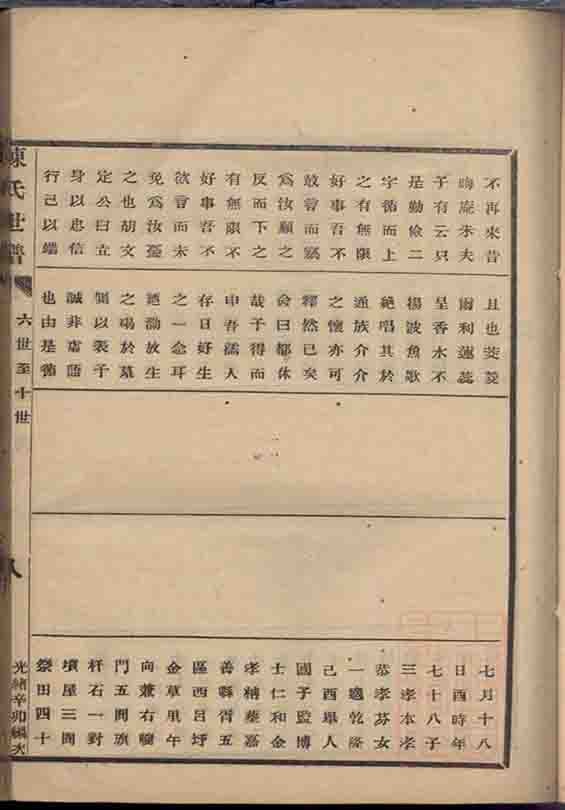 不再來昔
晦庵朱夫
子有云只
是勤儉二
字循而上
之有無限
好事吾不
敢嘗而竊
為汝願之
反而下之
有無限不
好事吾不
欲言而未
免為汝憂
之也胡文
定公曰立
身以忠信
行己以端
且也芰菱
爾利蓮蕊
呈香水不
揚波魚歌
絶唱其於
通族介介
之懷亦可
釋然已矣
命曰都休
哉子得而
申吾孺人
存日好生
之一念耳
廼勒放生
之碣於墓
側以裘子
誠非虛語
也由是循
七月十八
日酉時年
七十八子
三孝本孝
恭孝芬女
一適乾隆
己酉舉人
國子監博
士仁和金
孝柟葬嘉
善縣胥五
區西呂圩
金草里午
向兼右驂
門五間旗
杆石一對
墳屋三間
祭田四十
陳氏世譜
六世至十世
八
光緒辛卯編次